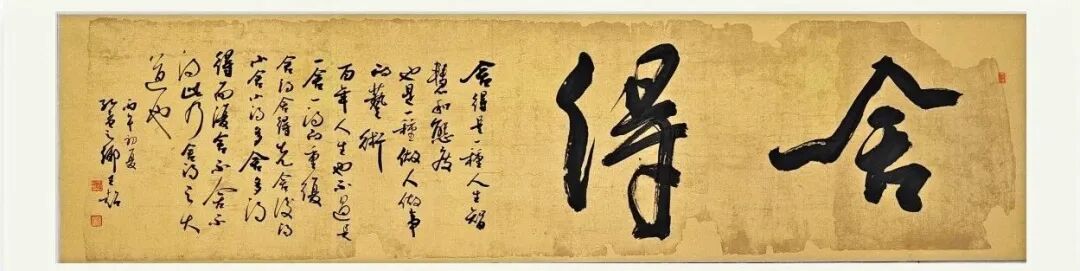 舍得
舍得是一種人生智
慧和態度
也是一種做人做事
的藝術
百年人生也不過是
一舍一得的重復
舍得舍得先舍後得
小舍小得多舍多得
得而復舍不舍不
得此乃舍得之大
道也
丙午初夏
之鄉